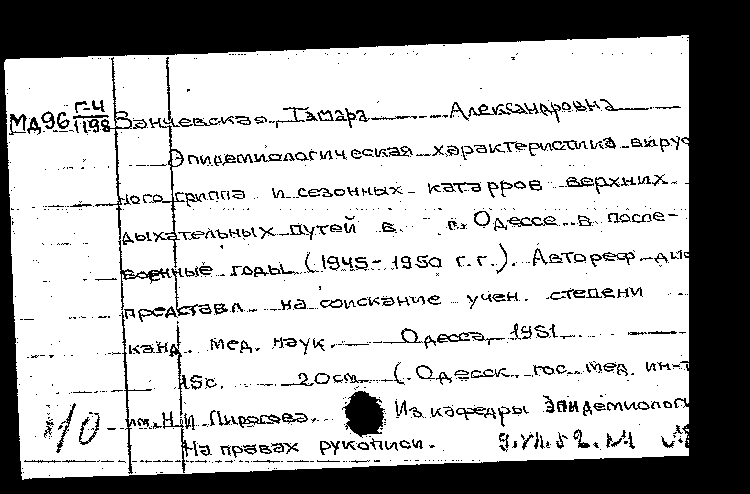 Мд96 Г-4/1198 Занчевская, Тамара Александровна
Эпидемиологическая характеристика вирус
ного гриппа и сезонных катарров верхних
дыхательных путей в г. Одессе в после-
военные годы (1945-1950 г.г.). Автореф. дис
представл. на соискание учен. степени
канд. мед. наук. Одесса, 1951
15с. 20см (Одесск. гос. мед. ин-т
им. Н.И. Пирогова. Из кафедры эпидемиологи
На правах рукописи.